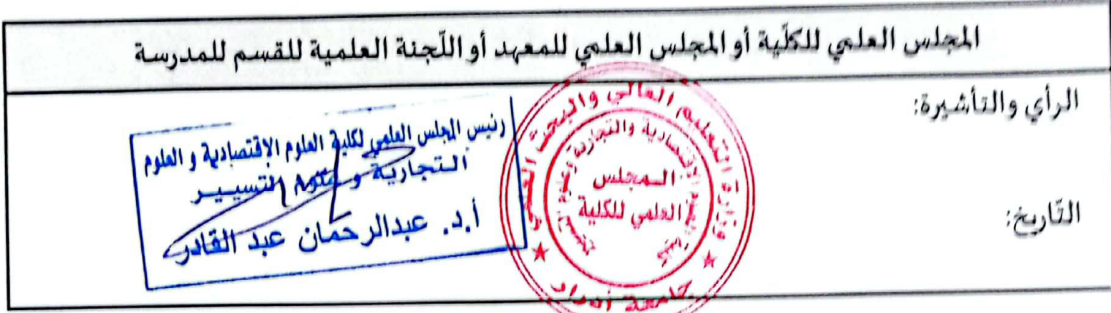 المجلس العلمي للكلّية أو المجلس العلمي للمعهد أو اللّجنة العلمية للقسم للمدرسة
الرأي والتأشيرة:
رئيس المجلس العلمي لكلية العلوم الاقتصادية و العلوم
التجارية و علوم التسيير
أ.د. عبدالرحمان عبد القادر
وزارة التعليم العالي والبحث العلمي
المجلس
العلمي للكلية
جامعة أدرار
التّاريخ: